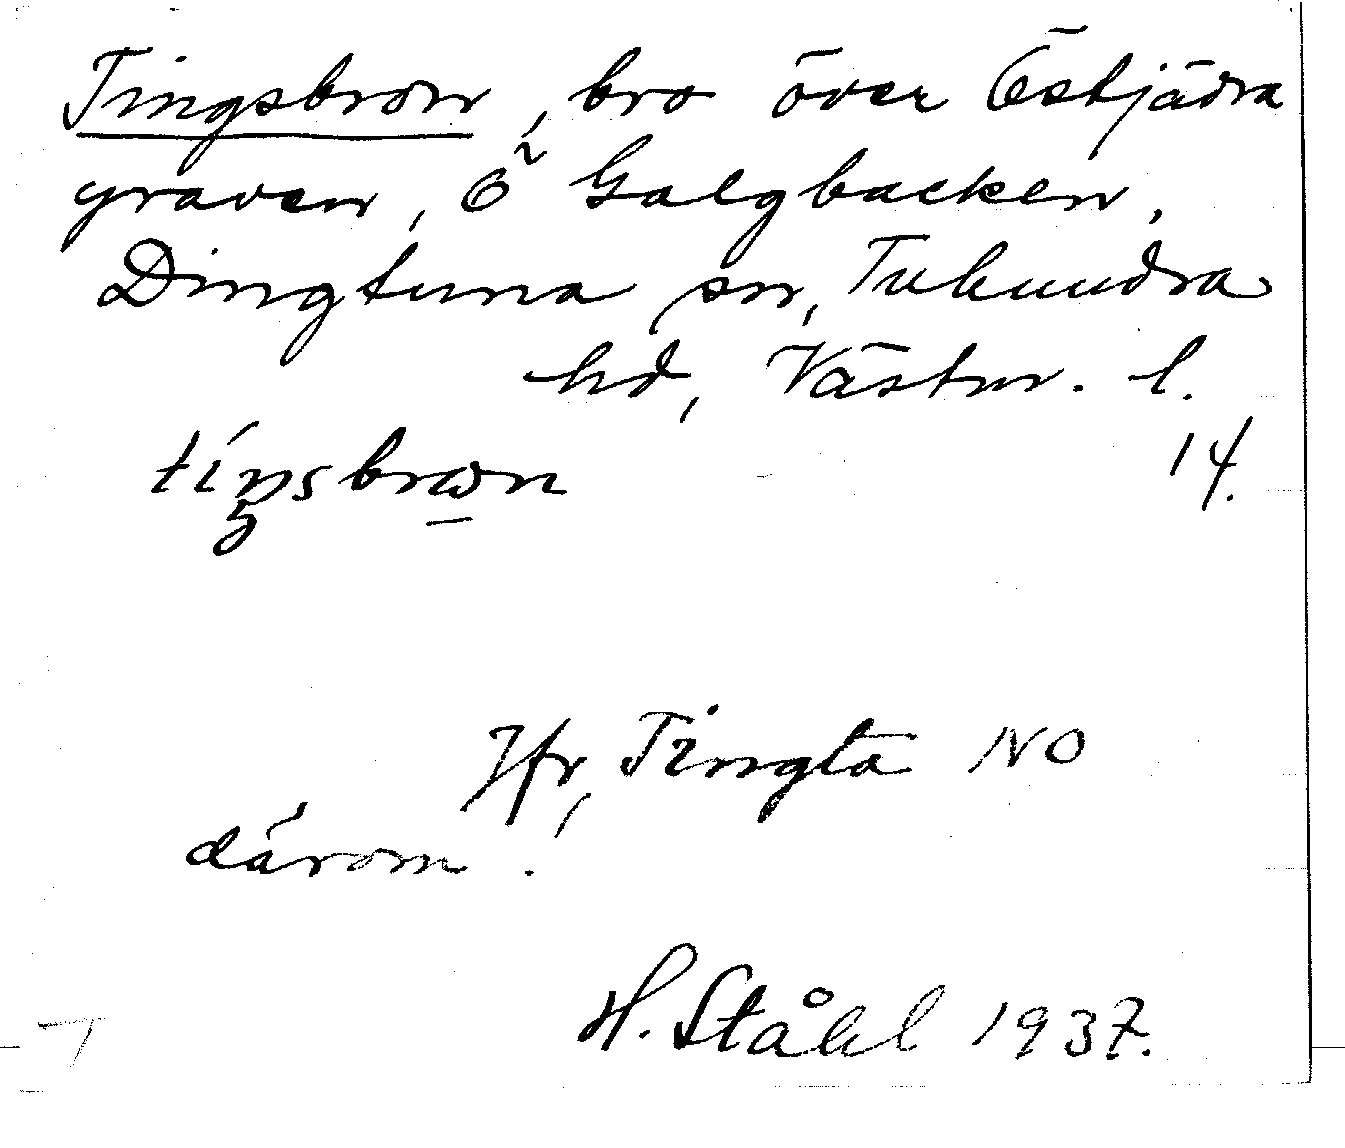 Tingsbron, bro över Östjädra
graven, Ö Galgbacken,
Dingtuna sn, Tuhundra
hd, Västm. l.
14.
tiŋsbron
Jfr, Tingta NO
därom.
H. Ståhl 1937.